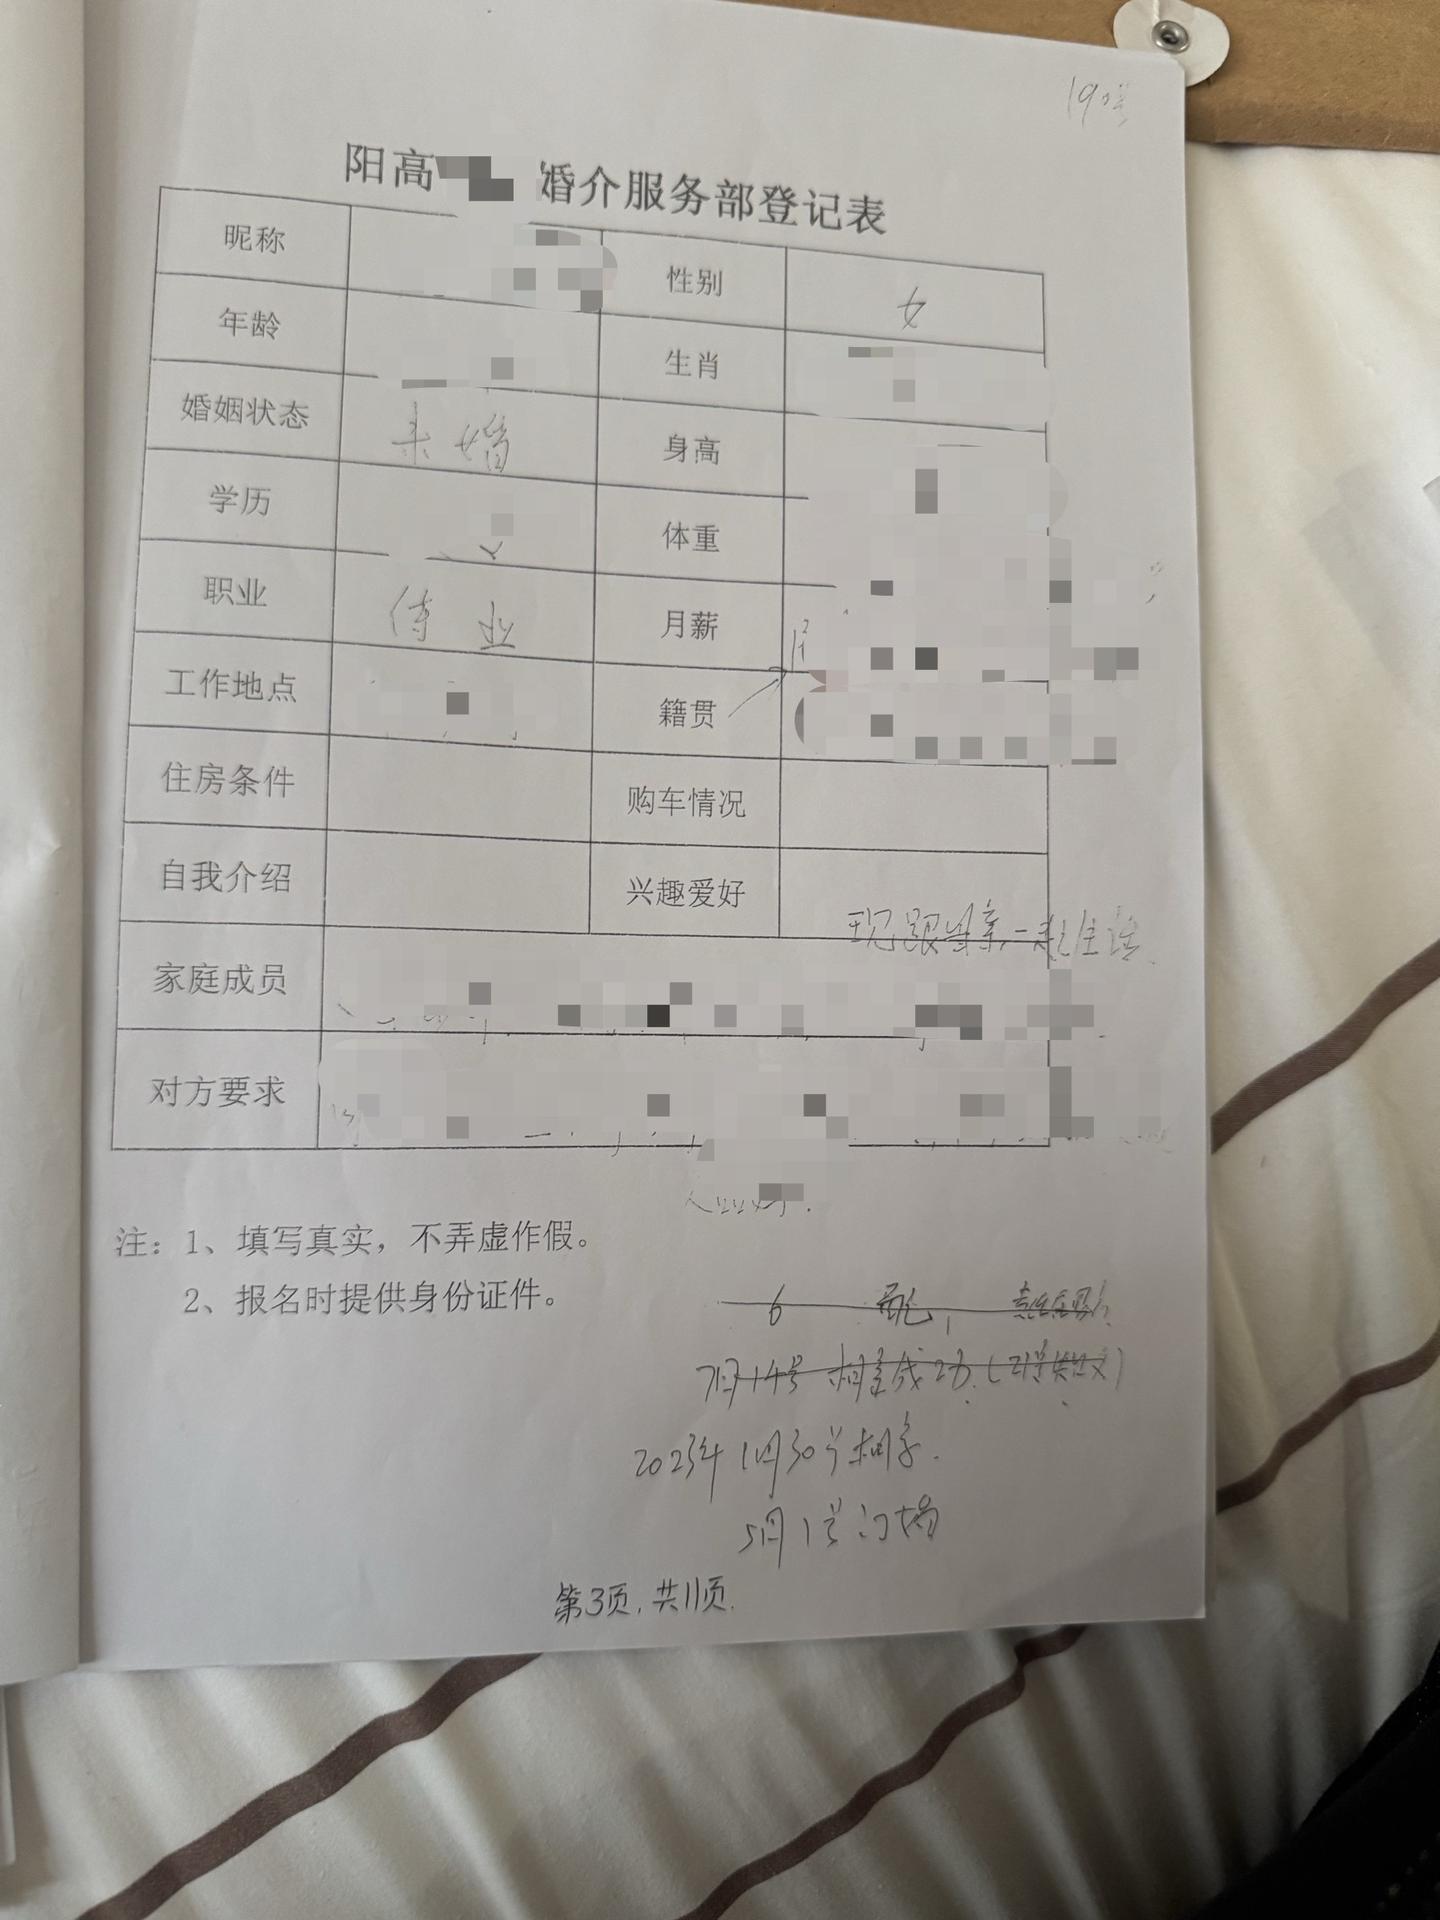 19号
阳高 婚介服务部登记表
昵称 性别 女
年龄 生肖
婚姻状态 未婚 身高
学历 体重
职业 待业 月薪
工作地点 籍贯
住房条件 购车情况
自我介绍 兴趣爱好
现跟母亲一起生活
家庭成员
对方要求
注：1、填写真实，不弄虚作假。
2、报名时提供身份证件。
6
7月14号相亲成功
2023年1月30号相亲.
5月1号订婚
第3页,共11页.